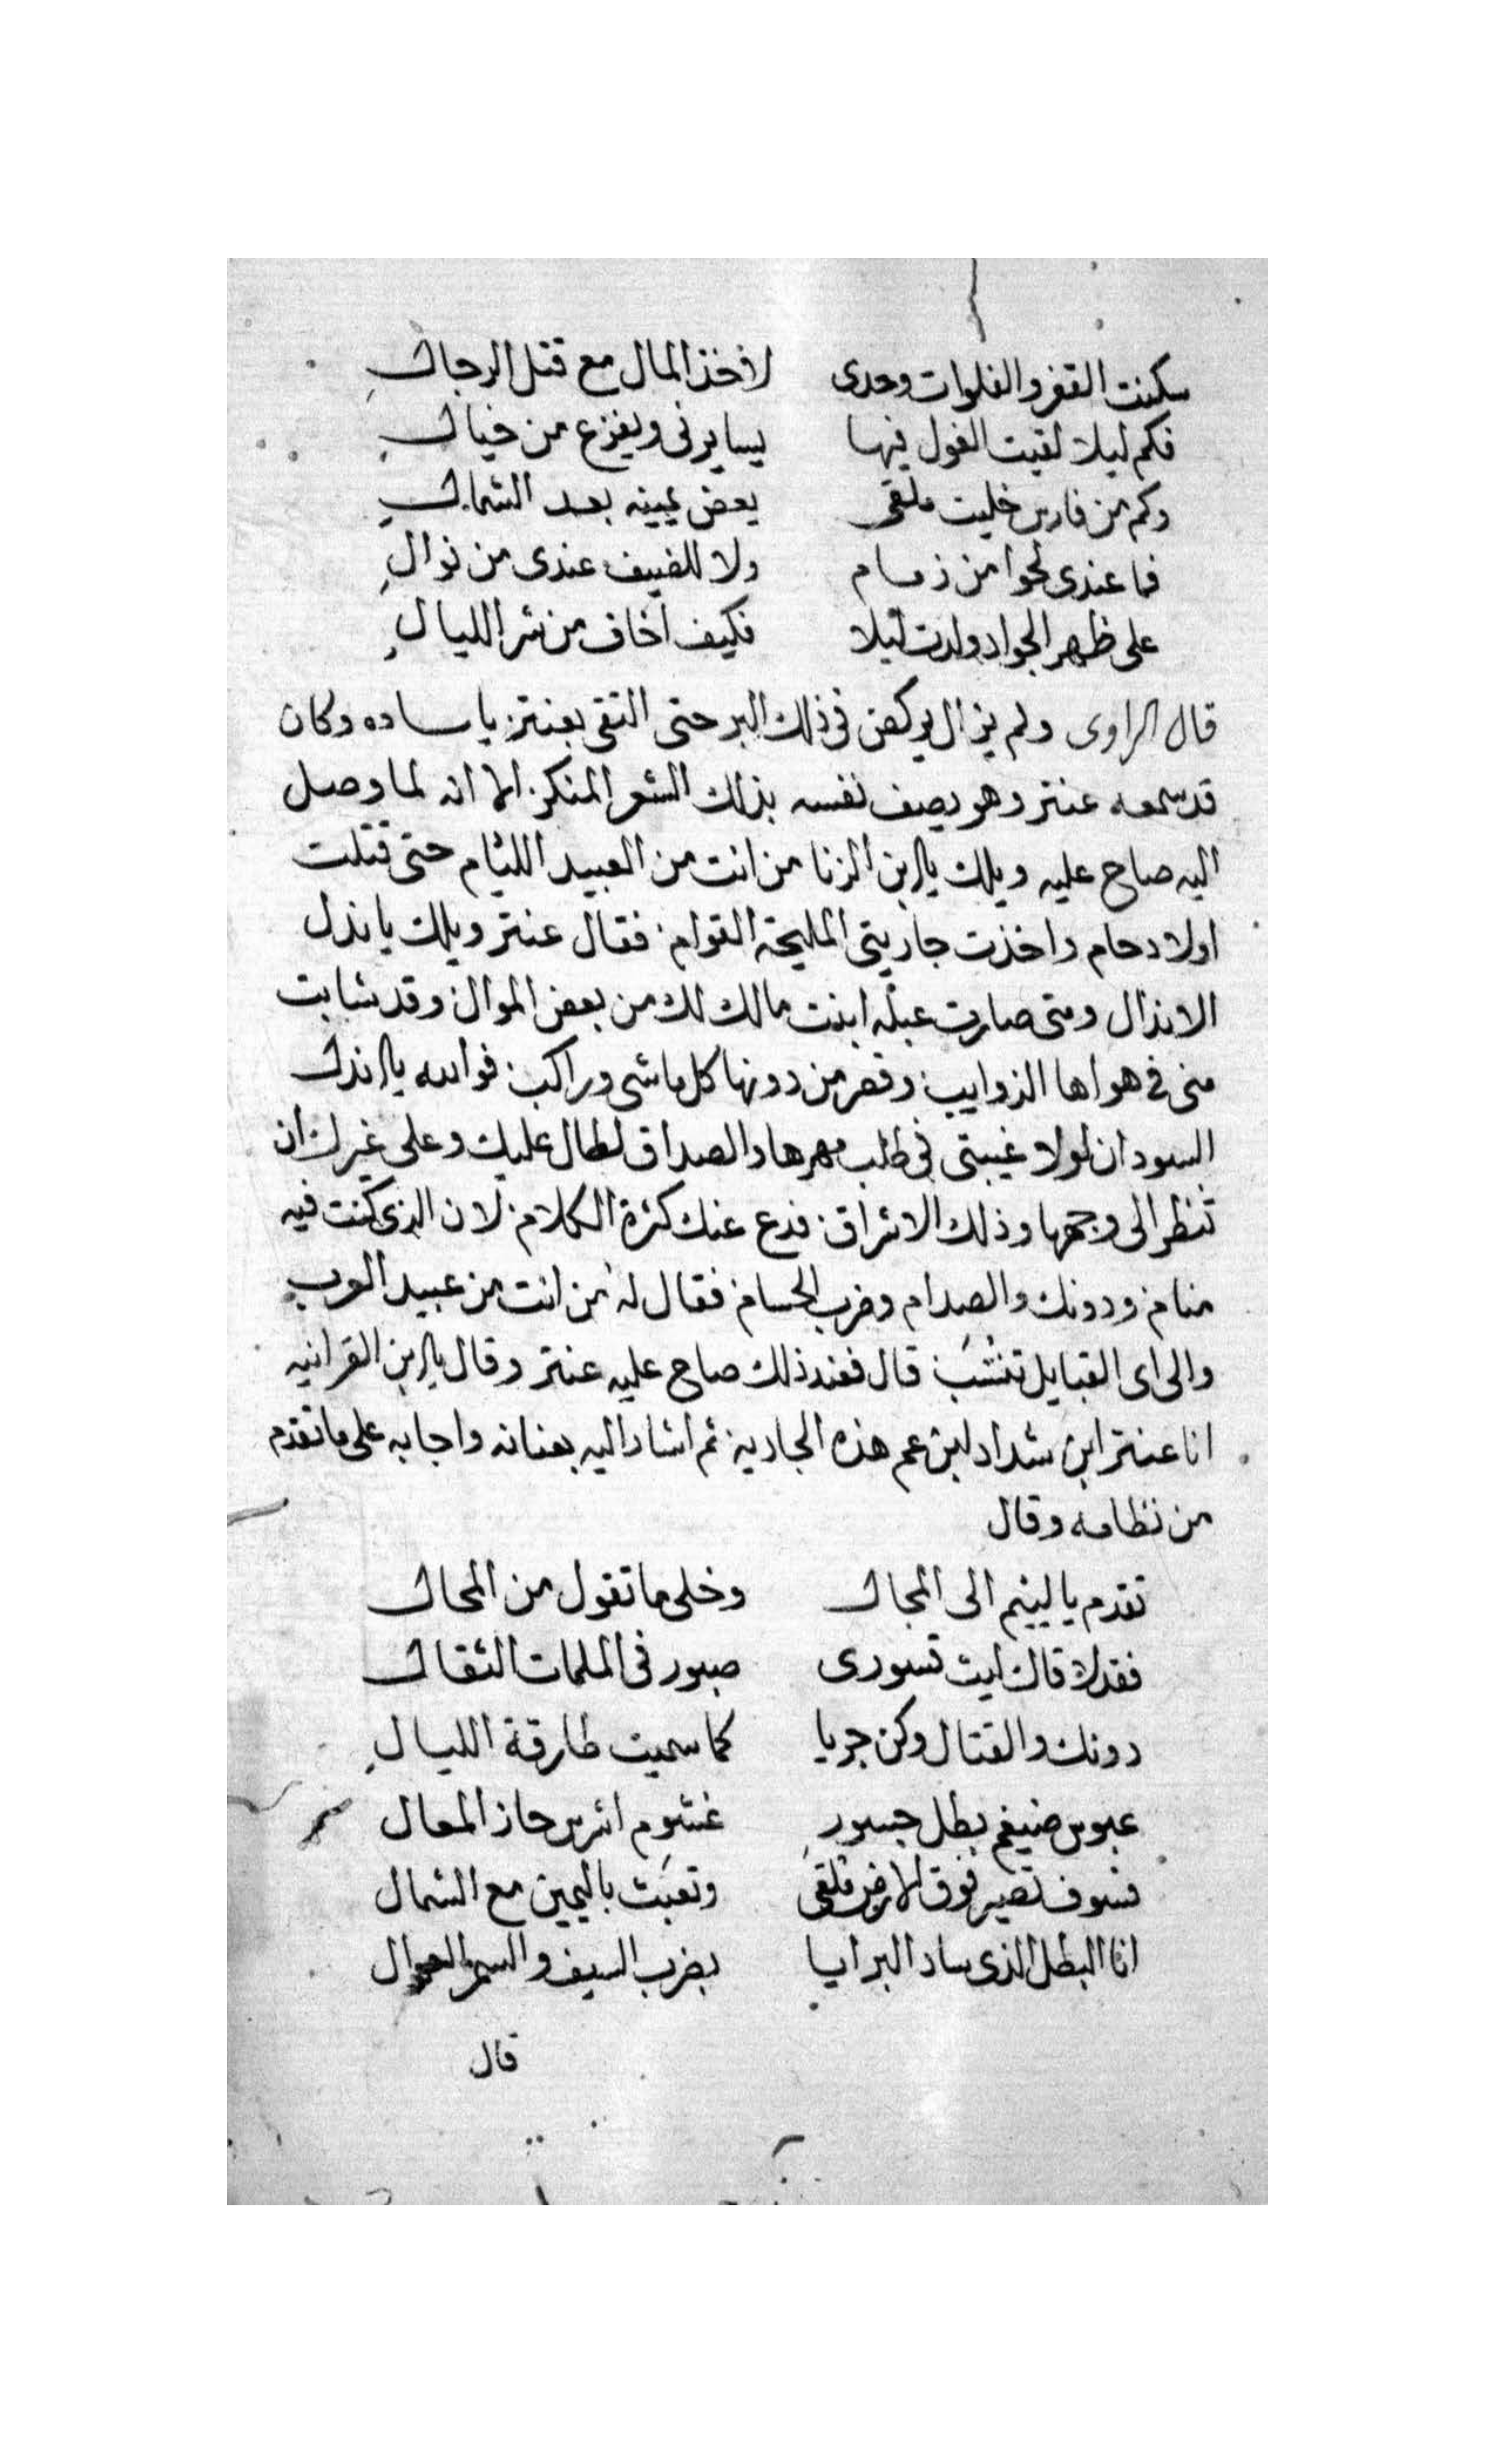 سكنت القفر والفلوات وحدى لاخذ المال مع قتل الرجال
فكم ليلا لقيت الغول فيها يسايرنى ويفزع من خيال
وكم من فارس خليت ملقى يعض يمينه بعد الشمال
فما عندى لحوا من زمام ولا للضيف عندى من نوال
على ظهر الجواد ولدت ليلا فكيف اخاف من شر الليال
قال الراوى ولم يزال يركض فى ذلك البر حتى التقى بعنتر يا ساده وكان
قد سمعه عنتر وهو يصف نفسه بذلك الشعر المنكر الا انه لما وصل
اليه صاح عليه ويلك يا ابن الزنا من انت من العبيد اللئام حتى قتلت
اولاد حام واخذت جاريتى المليحة القوام فقال عنتر ويلك يا ندل
الاندال ومتى صارت عبله ابنت مالك لك من بعض الموال وقد شابت
منى فى هواها الذوايب وقصر من دونها كل ماشى وراكب فوالله يا اندل
السودان لولا غيبتى فى طلب مهرها والصداق لطال عليك وعلى غيرك ان
تنظر الى وجهها وذلك الاشراق فدع عنك كثرة الكلام لان الذى كنت فيه
منام ودونك والصدام وضرب الحسام فقال له من انت من عبيد العرب
والى اى القبايل تنتسب قال فعند ذلك صاح عليه عنتر وقال يا ابن القرانيه
انا عنتر ابن شداد ابن عم هذه الجارية ثم اشار اليه بعنانه واجابه على ما تقدم
من نظامه وقال
تقدم يا ليئم الى المجال وخلى ما تقول من المحال
فقد لاقاك ليث قسورى صبور فى الملمات الثقال
دونك والقتال وكن جريا كما سميت طارقة الليال
عبوس ضيغم بطل جسور غشوم اشرس حاز المعال
فسوف تصير فوق الارض ملقى وتعبت باليمين مع الشمال
انا البطل الذى ساد البرايا بضرب السيف والسمر العوال
قال